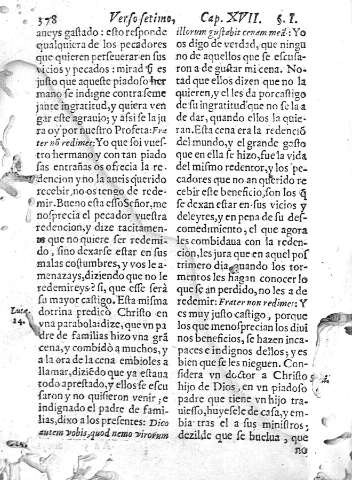 378 Verso setimo, Cap. XVII. §. I.
aueys gastado: esto responde
qualquiera de los pecadores
que quieren perseuerar en sus
vicios y pecados: mirad q̃ es
justo que aqueste piadoso her
mano se indigne contra seme
jante ingratitud, y quiera ven
gar este agrauio; y assi se la ju
ra oy por nuestro Profeta: Fra-
ter nõ redimet: Yo que soi vues-
tro hermano y con tan piado
sas entrañas os ofrecia la re-
dencion y no la aueis querido
recebir, no os tengo de rede-
mir. Bueno esta esso Señor, me
nosprecia el pecador vuestra
redencion, y dize tacitamen-
te que no quiere ser redemi-
do, sino dexarse estar en sus
malas costumbres, y vos le a-
menazays, diziendo que no le
redemireys? si, que esse serà
su mayor castigo. Esta misma
dotrina predicò Christo en
vna parabola: dize, que vn pa
dre de familias hizo vna grã
cena, y combidò a muchos, y
a la ora de la cena embioles a
llamar, diziẽdo que ya estaua
todo aprestado, y ellos se escu
saron y no quisieron venir; e
indignado el padre de fami-
lias, dixo a los presentes: Dico
autem vobis, quod nemo virorum
Luc.
14.
illorum gustabit cenam meã: Yo
os digo de verdad, que ningu
no de aquellos que se escusa-
ron a de gustar mi cena. No-
tad que ellos dizen que no la
quieren, y el les da por castigo
de su ingratitud que no se la a
de dar, quando ellos la quie-
ran. Esta cena era la redenciõ
del mundo, y el grande gasto
que en ella se hizo, fue la vida
del mismo redentor, y los pe-
cadores que no an querido re
cebir este beneficio, son los q̃
se dexan estar en sus vicios y
deleytes, y en pena de su des-
comedimiento, el que agora
les combidaua con la reden-
cion, les jura que en aquel pos
trimero dia, quando los tor-
mentos les hagan conocer lo
que se an perdido, no les a de
redemir: Frater non redimet: Y
es muy justo castigo, porque
los que menosprecian los diui
nos beneficios, se hazen inca-
paces e indignos dellos; y es
bien que se les nieguen. Con-
sidera vn doctor a Christo
hijo de Dios, en vn piadoso
padre que tiene vn hijo tra-
uiesso, huyesele de casa, y em-
bia tras el a sus ministros;
dezilde que se buelua, que
no